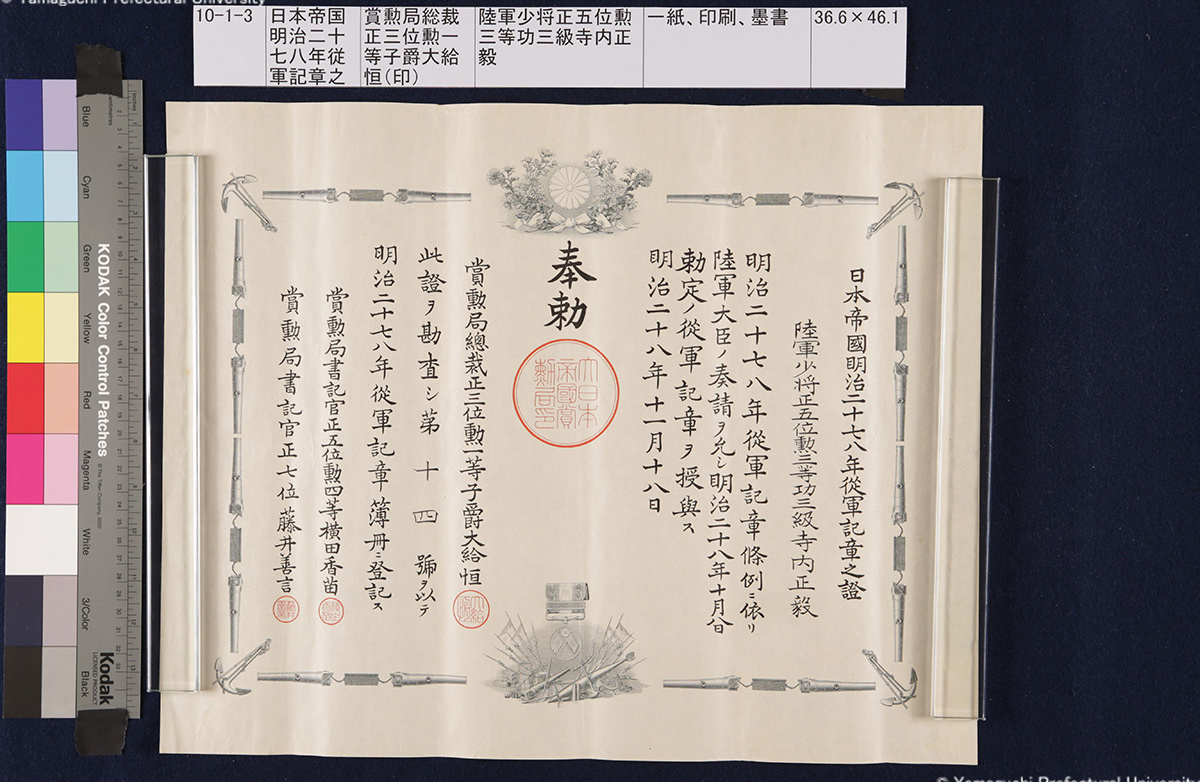 © Yamaguchi Prefectural University
10-1-3
日本帝国
明治二十
七八年従
軍記章之
賞勲局総裁
正三位勲一
等子爵大給
恒(印)
陸軍少将正五位勲
三等功三級寺内正
毅
一紙、印刷、墨書
36.6×46.1
日本帝國明治二十七八年從軍記章之證
陸軍少将正五位勲三等功三級寺内正毅
明治二十七八年從軍記章條例ニ依リ
陸軍大臣ノ奏請ヲ允シ明治二十八年十月八日
勅定ノ從軍記章ヲ授與ス
明治二十八年十一月十八日
奉勅
大日本
帝國賞
勲局印
賞勲局總裁正三位勲一等子爵大給恒
此證ヲ勘査シ第十四號ヲ以テ
明治二十七八年從軍記章簿冊ニ登記ス
賞勲局書記官正五位勲四等横田香苗
賞勲局書記官正七位藤井善言
KODAK Color Control Patches
Kodak
LICENSED PRODUCT
© The Tiffen Company, 2000
Blue
Cyan
Green
Yellow
Red
Magenta
White
3/Color
Black
© Yamaguchi Prefectural University